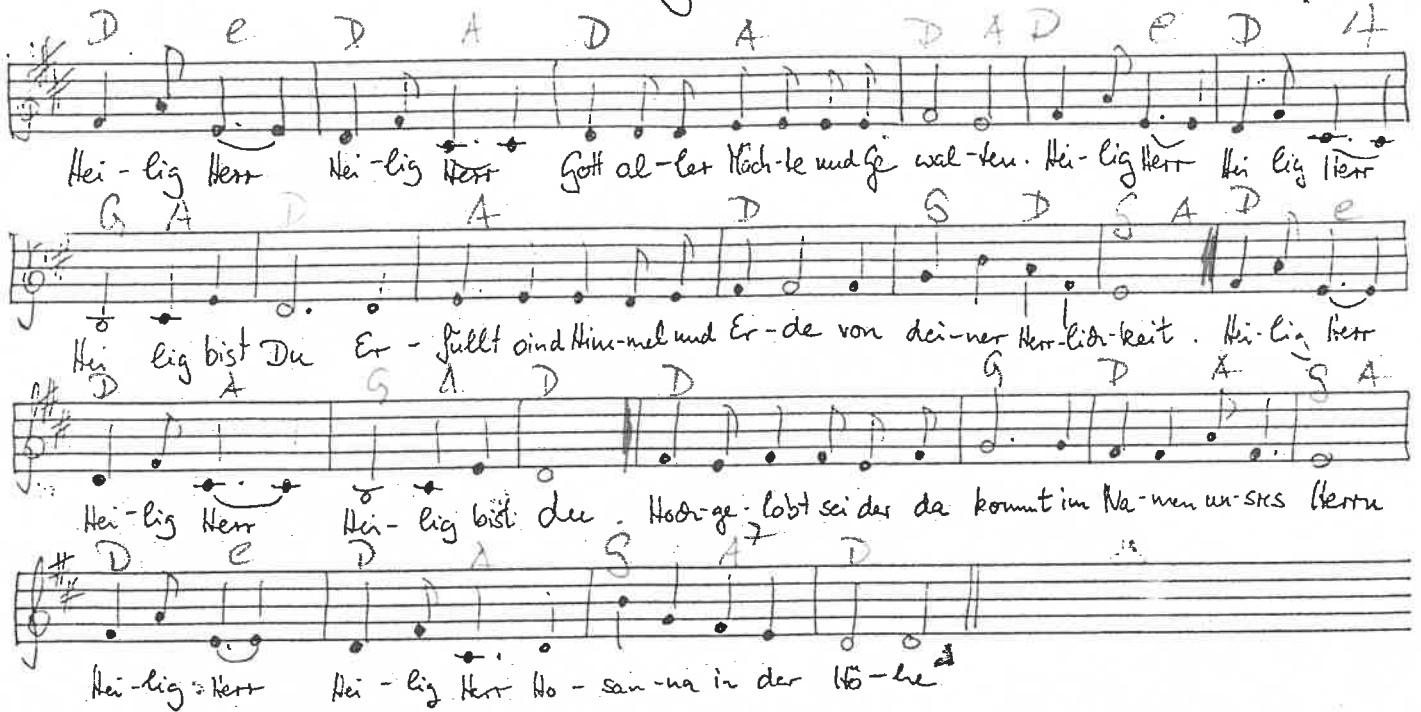 D e D A D A D A D e D A
Hei-lig Herr Hei-lig Herr Gott al-ler Mäch-te und Ge wal-ten. Hei-lig Herr Hei lig Herr
G A D A D G D G A D e
Hei lig bist Du Er-füllt sind Him-mel und Er-de von dei-ner Herr-lich-keit. Hei-lig Herr
D A G A D D G D A G A
Hei-lig Herr Hei-lig bist du. Hoch-ge-lobt sei der da kommt im Na-men un-sres Herrn
D e D A G A7 D
Hei-lig Herr Hei-lig Herr Ho-san-na in der Hö-he